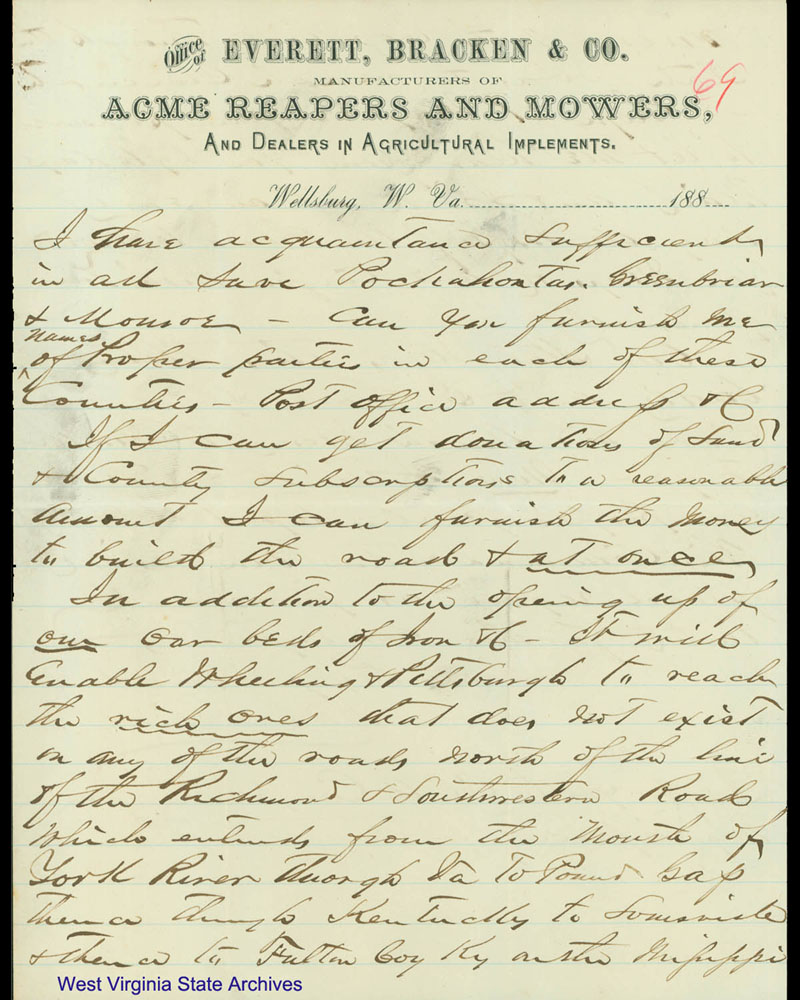 Office of EVERETT, BRACKEN & CO.
MANUFACTURERS OF
ACME REAPERS AND MOWERS,
69
AND DEALERS IN AGRICULTURAL IMPLEMENTS.
Wellsburg, W. Va. 188
I have acquaintance sufficient
in all save Pochahontas. Greenbriar
& Monroe – Can you furnish me
names
of Proper parties in each of these
Counties – Post office address &C
If I can get donations of Land
& County subscriptions to a reasonable
amount I can furnish the money
to build the road & at once
In addition to the opening up of
our Oar beds of Iron &C – It will
Enable Wheeling & Pittsburgh to reach
the rich ores that does not exist
on any of the roads north of the line
of the Richmond & Southwestern Road
which extends from the mouth of
York River through Va To Pound Gap
thence through Kentucky to
& thence to Fulton Coy Ky on the Missippi
West Virginia State Archives